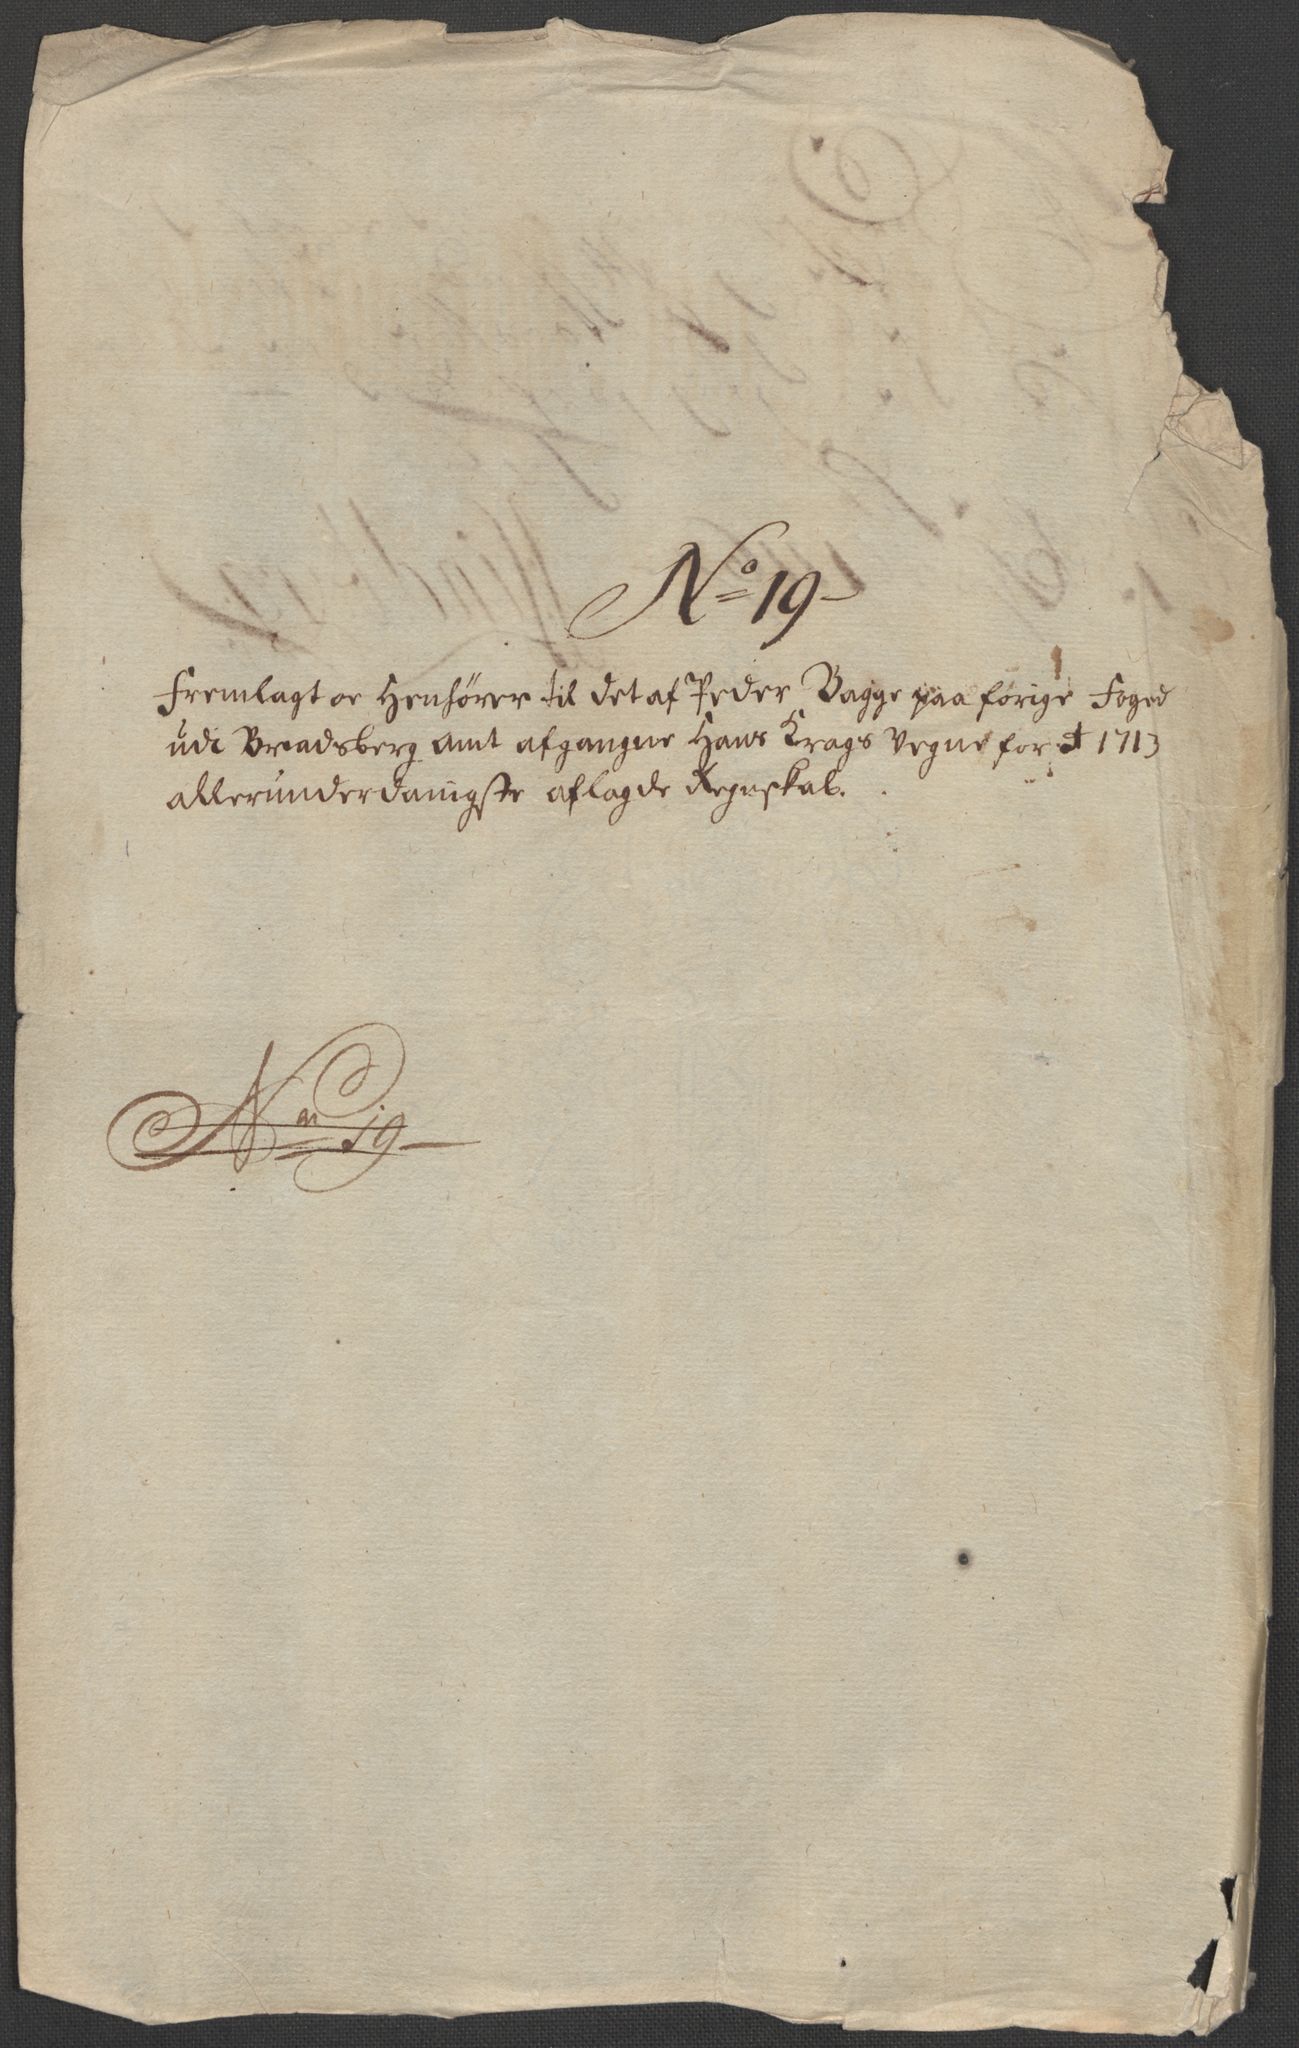 No 19
Fremlagt oc Henhører til det af Peder Bagge paa forige Foged
udi Bradsberg amt afgangne Hans Krags Vegne for A 1713
allerunderdanigste aflagde Regnskab.
No 19